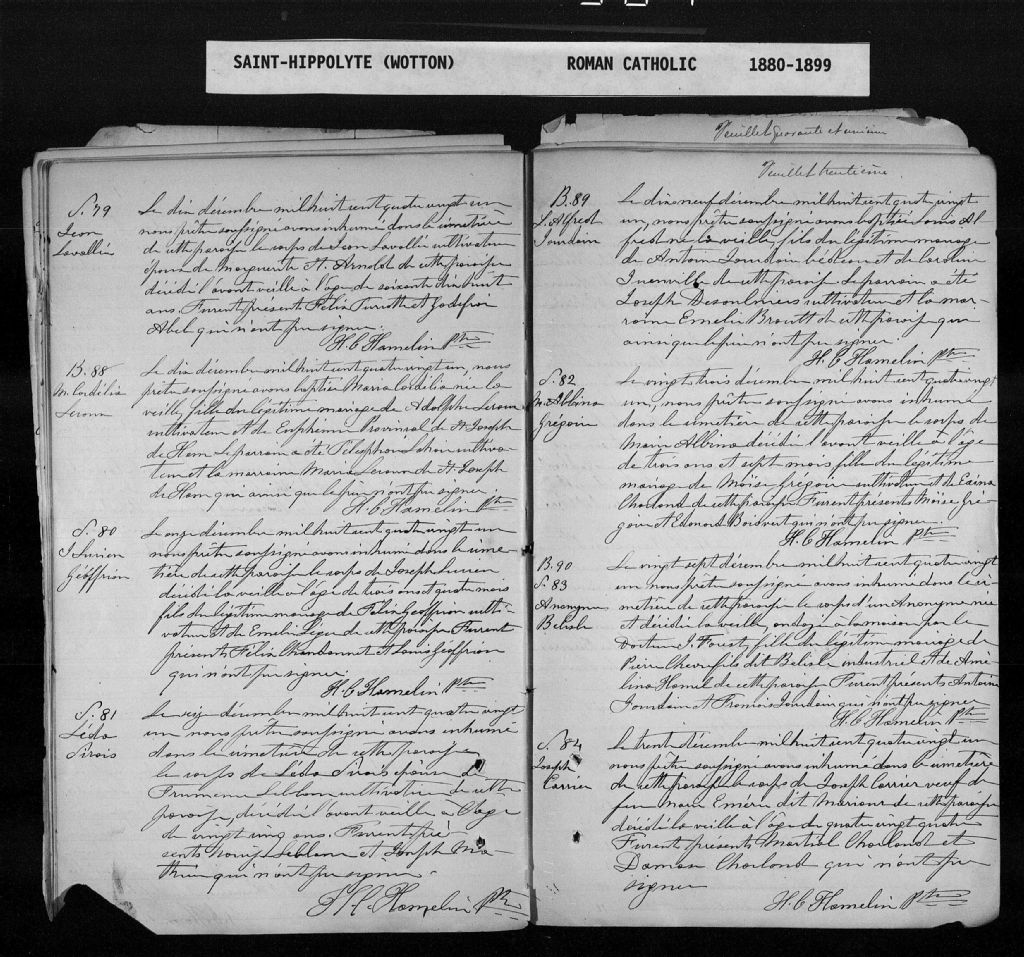 SAINT-HIPPOLYTE (WOTTON) ROMAN CATHOLIC 1880-1899
Feuillet quarante et unième
Feuillet trentième
S. 79
Leon
Lavallée
Le dix décembre mil huit cent quatre vingt un
nous prêtre soussigné avons inhumé dans le cimetière
de cette paroisse le corps de Leon Lavallée cultivateur
époux de Marguerite St. Arnold de cette paroisse
décédé l'avant veille à l'âge de soixante dix huit
ans. Furent présent Felix Turcotte et Godefroi
Abel qui n'ont pu signer.
H. C Hamelin Ptre
B. 88
M. Cordélia
Leroux
Le dix décembre mil huit cent quatre vingt un, nous
prêtre soussigné avons baptisé Maria Cordelia née la
veille, fille du légitime mariage de Adolphe Leroux
cultivateur et de Euphemie Provençal de St Joseph
de Ham. Le parrain a été Telesphore cultiva-
teur et la marraine Marie Leroux de St. Joseph
de Ham qui ainsi que le père n'ont pu signer.
H. C Hamelin Ptre
S. 80
J. Lucien
Géoffrion
Le onze décembre mil huit cent quatre vingt un
nous prêtre soussigné avons inhumé dans le cime-
tière de cette paroisse le corps de Joseph Lucien
décédé la veille à l'age de trois ans et quatre mois
fils du légitime mariage de Felix Geoffrion culti-
vateur et de Emelie Léger de cette paroisse Furent
présents Félix et Louis Géoffrion
qui n'ont pu signer.
H. C Hamelin Ptre
S. 81
Léda
Sirois
Le seize décembre mil huit cent quatre vingt
un nous prêtre soussigné avons inhumé
dans le cimetière de cette paroisse
le corps de Léda Sirois épouse de
Leblanc cultivateur de cette
paroisse, décédée l'avant veille à l'âge
de vingt cinq ans. Furent pré
sents Leblanc et Joseph Ma
thieu qui n'ont pu signer.
H. C. Hamelin Ptre
B. 89
J. Alfred
Jourdain
Le dix neuf décembre mil huit cent quatre vingt
un, nous prêtre soussigné avons baptisé sous Al
fred né la veille, fils du légitime mariage
de Antoine Jourdain bédeau et de Caroline
de cette paroisse Le parrain a été
Joseph Desoulniers cultivateur et la mar-
raine Emelie Brault de cette paroisse qui
ainsi que le père n'ont pu signer
H. C Hamelin Ptre
S. 82
M. Albina
Gregoire
Le vingt trois décembre mil huit cent quatre vingt
un, nous prêtre soussigné avons inhumé
dans le cimetière de cette paroisse le corps de
Marie Albina décédée l'avant veille à l'âge
de trois ans et sept mois fille du légitime
mariage de Moïse Grégoire cultivateur et de Exina
Charland de cette paroisse Furent présents Moïse Gré-
goire et Edouard Boisvert qui n'ont pu signer.
H. C Hamelin Ptre
B. 90
S. 83
Anonyme
Belisle
Le vingt sept décembre mil huit cent quatre vingt
un nous prêtre soussigné avons inhumé dans le ci-
metière de cette paroisse le corps d'un Anonyme née
et décédée la veille, ondoyée à la maison par le
Docteur J. Forest, fille du légitime mariage de
Pierre Chevrefils dit Belisle industriel et de Amé-
lina Hamel de cette paroisse Furent présents Antoine
Jourdain et François Jourdain qui n'ont pu signer
H. C Hamelin Ptre
S. 84
Joseph
Carrier
Le trente décembre mil huit cent quatre vingt un
nous prêtre soussigné avons inhumé dans le cimetière
de cette paroisse le corps de Joseph Carrier veuf de
feu Marie Emérie dit Marianne de cette paroisse
décédé la veille à l'âge de quatre vingt quatre
Furent présents Martial Charland et
Damase Charland qui n'ont pu
signer
H. C Hamelin Ptre